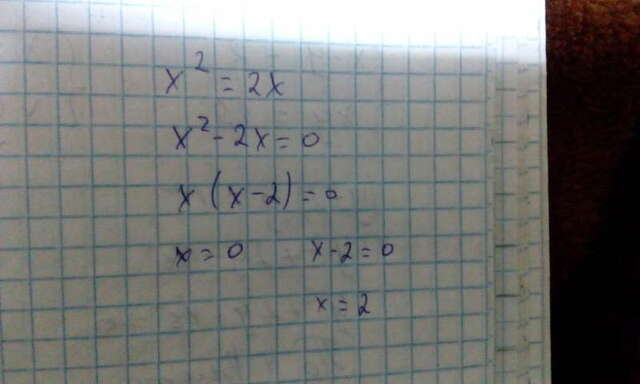 x² = 2x
x² - 2x = 0
x (x-2) = 0
x = 0 x - 2 = 0
x = 2